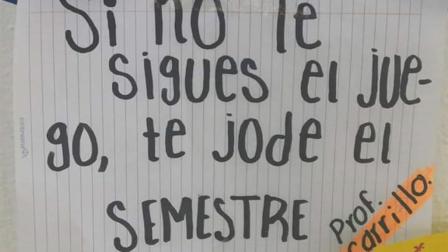 Si no le
sigues el jue-
go, te jode el
SEMESTRE
Prof.
Carrillo.